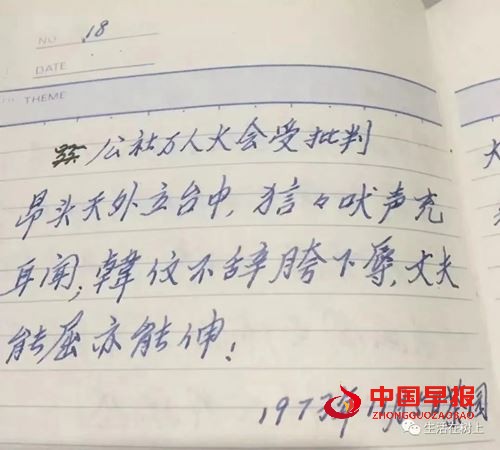 NO 18
DATE
THEME
公社万人大会受批判
昂头天外立台中,狺々吠声充
耳闻;韓伩不辞胯下辱,丈夫
能屈亦能伸;
1973年
中国早报
ZHONGGUOZAOBAO.COM
生活在树上